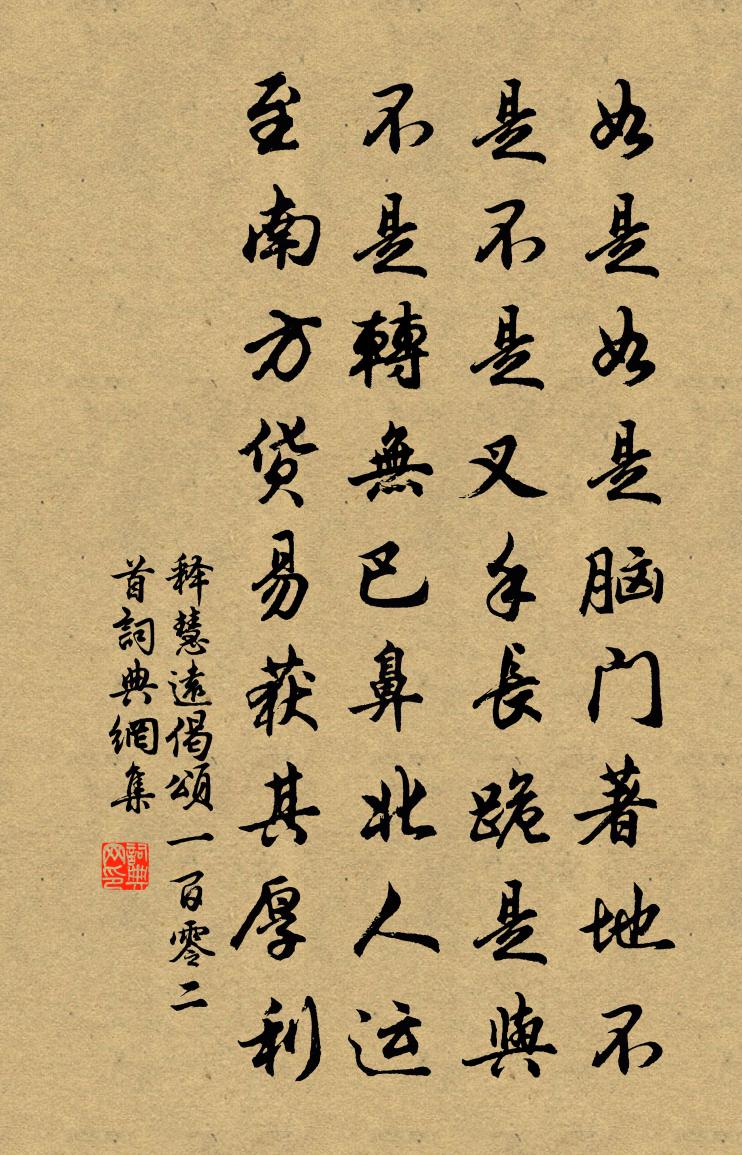 如是如是脑门著地不
是不是叉手長跪是與
不是轉無巴鼻北人运
至南方货易获其厚利
释慧遠偈頌一百零二
首詞典網集
詞典
网印